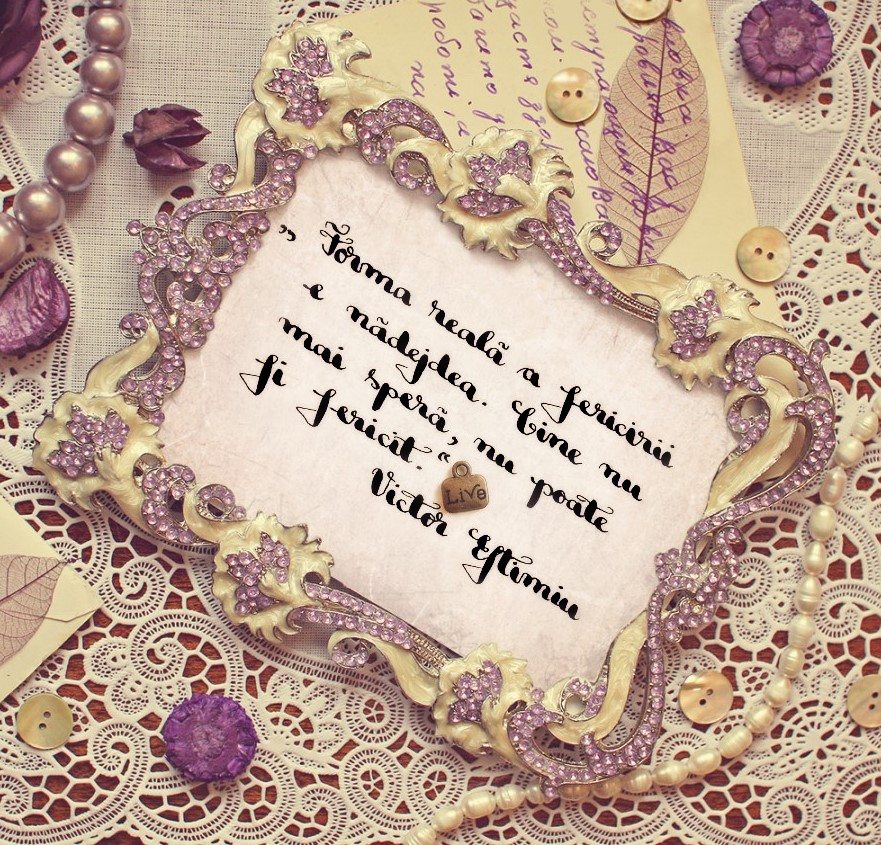 „ Forma reală a fericirii
e nădejdea. Cine nu
mai speră, nu poate
fi fericit.“
Victor Eftimiu
Live